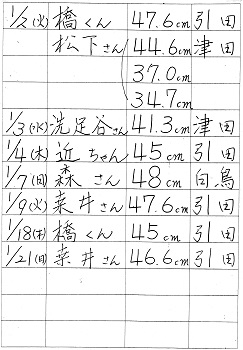 1/2(火) 橋くん 47.6cm 引田
松下さん 44.6cm 津田
37.0cm
34.7cm
1/3(水) 洗足谷さん 41.3cm 津田
1/4(木) 近ちゃん 45cm 引田
1/7(日) 森さん 48cm 白鳥
1/9(火) 菜井さん 47.6cm 引田
1/18(木) 橋くん 45cm 引田
1/21(日) 菜井さん 46.6cm 引田